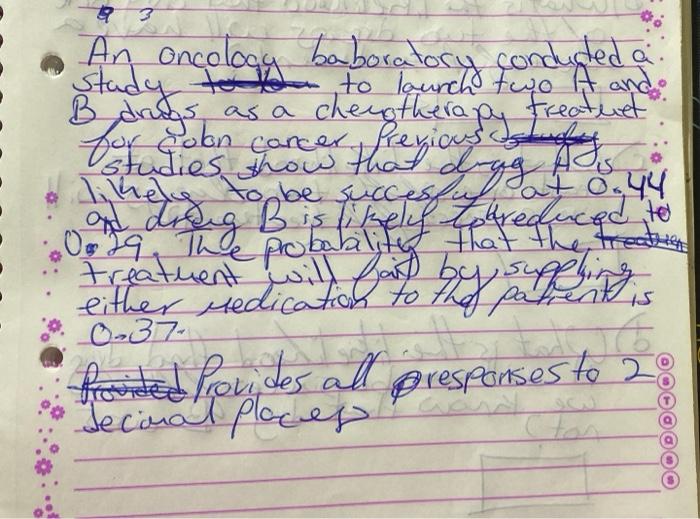 3
An oncology baboratory conducted a
study to launch two A and
B drugs as a chemotherapy treatmet
for colon cancer. Previous
studies show that drug A is
likely to be succesful at 0.44
and drug B is likely to reduced to
0.29. The probability that the
treatment will fail by suppling
either medication to the patient is
0.37.
Provided Provides all responses to 2
decimal places
D
S
T
Q
Q
S
S